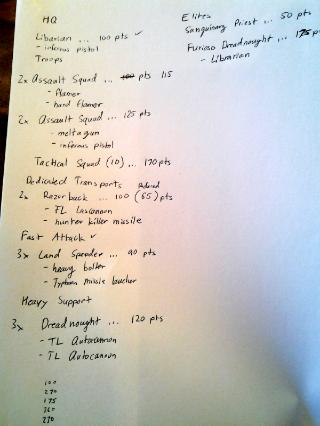 HQ
Libarian ... 100 pts ✓
- infernus pistol
Troops
2x Assault Squad ... 100 pts 115
- flamer
- hand flamer
2x Assault Squad ... 125 pts
- melta gun
- infernus pistol
Tactical Squad (10) ... 170 pts
Dedicated Transports
2x Razorback ... 100 (65) pts
- TL Lascannon
- hunter killer missile
Fast Attack ✓
3x Land Speeder ... 90 pts
- heavy bolter
- Typhoon missile laucher
Heavy Support
3x Dreadnought ... 120 pts
- TL Autocannon
- TL Autocannon
100
270
175
360
270
Elites
Sanguinary Priest ... 50 pts
Furioso Dreadnought ... 175 p
- Librarian